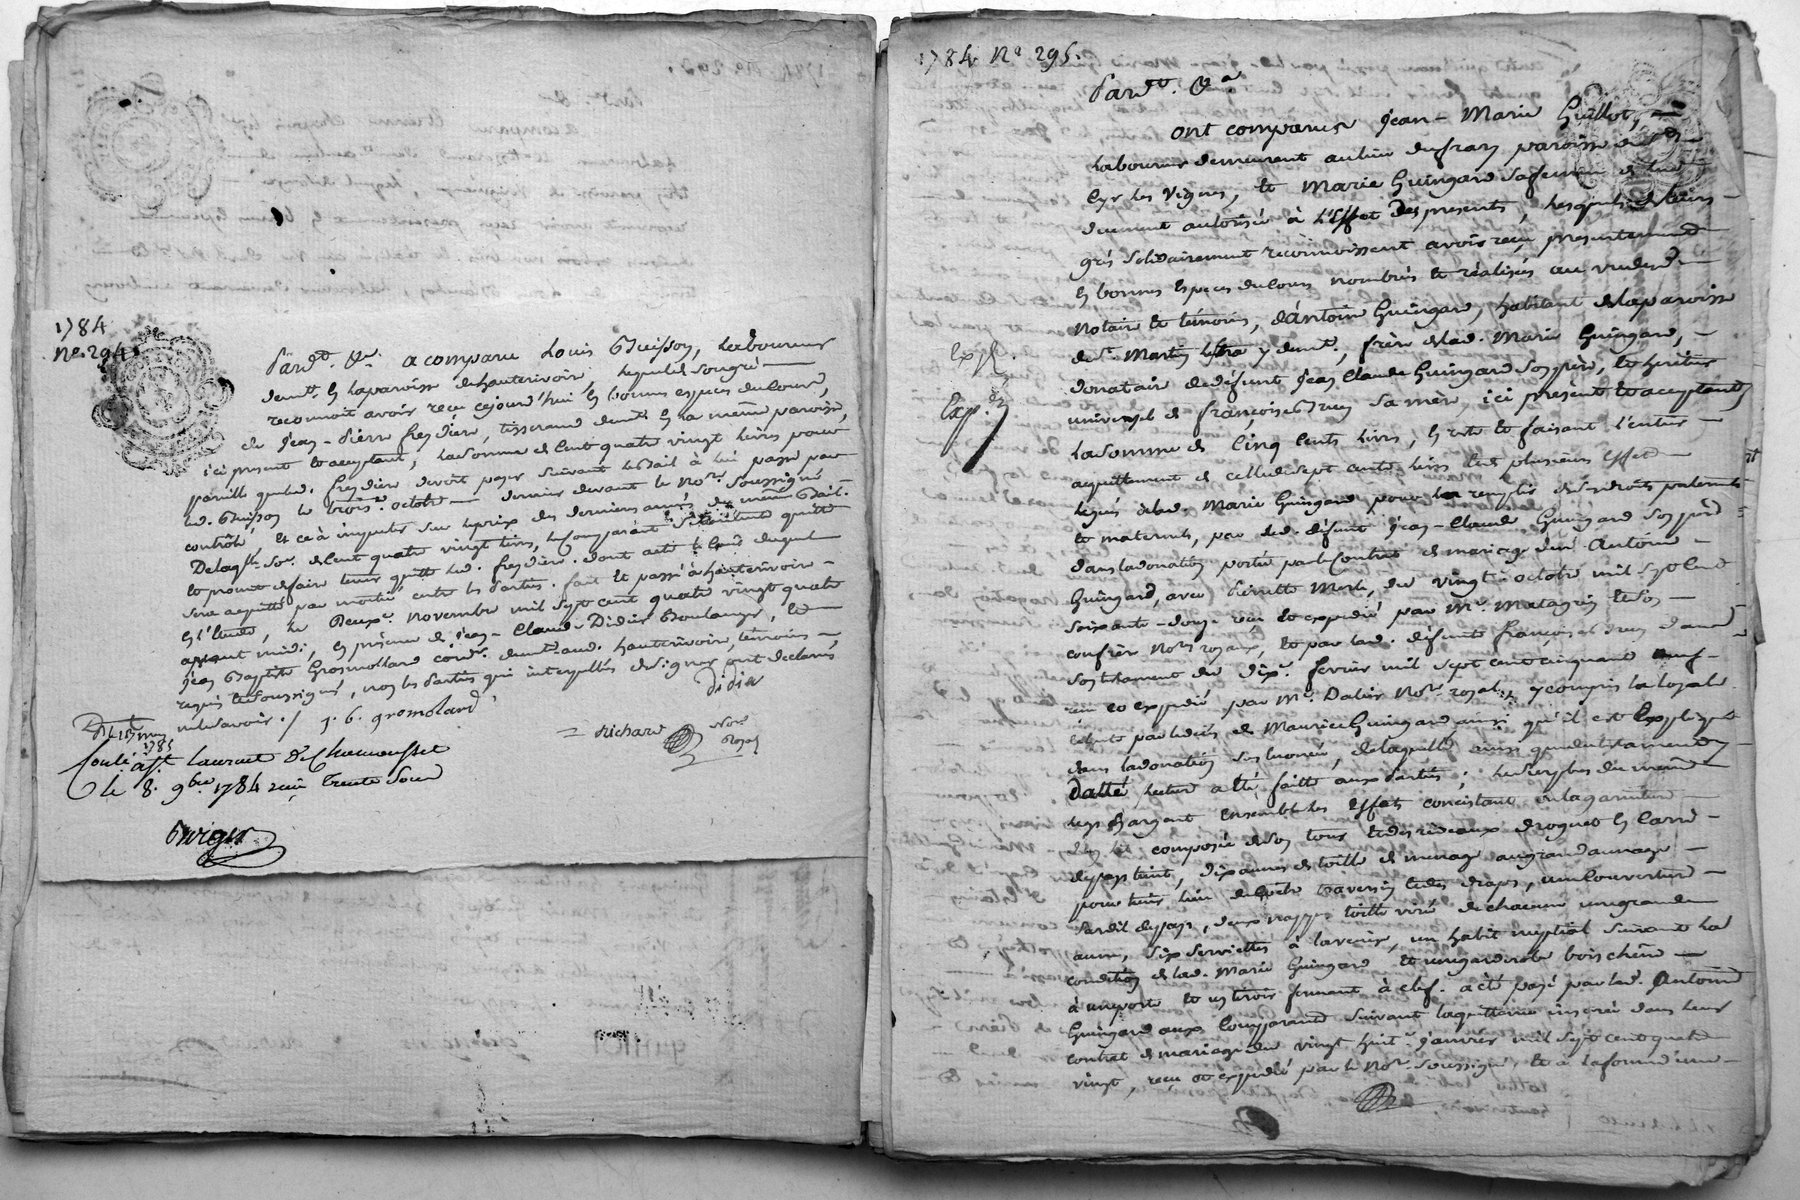 1784
No. 294.
Pard.t &a. a comparu Louis Buisson, Laboureur
demt. en la paroisse de hauterivoire, lequel de son gré
reconnoit avoir reçu cejourd'hui en bonnes especes du Cours,
de Jean-Pierre freydiere, tisserand demt. en la meme paroisse,
ici present et acceptant, la somme de Cent quatre vingt livres pour
pareille que led. freydiere devoit payer suivant le Bail à lui passé par
led. Buisson le trois octobre dernier devant le Nore. soussigné
contrôlé et ce à imputer sur le prix des dernieres années du même Bail.
De laqlle. Some. de Cent quatre vingt livres, le Comparant
et promet de faire tenir quitte led. freydiere. dont acte
sera acquitté par moitié entre les Parties. fait et passé à hauterivoire
en l'Etude, le Deuxe. Novembre mil sept cent quatre vingt quatre
avant midi, en présence de Jean-Claude Didier Boulanger, et
Jean Baptiste Grosmollard cordr. demt. aud. hauterivoire, témoins
requis et soussignés, non les Parties qui interpellées de signer ont déclaré
ne le savoir. / J. B. gromolard Didier
= Richard Nore. Royal
1785
Conlé à St. Laurent de Chamousset
Le 8. 9bre 1784 reçu trente Sous
Orviger
1784 No. 295.
Pard.t &a
ont comparus Jean-Marie Guillot,
Laboureur demeurant au lieu du fray paroisse de St.
Cyr les Vignes, et Marie Guingard sa femme de lui
duement autorisée à L'Effet des presentes, lesquels de leurs
grés solidairement reconnoissent avoir reçu presentement
en bonnes Especes du Cours nombrées et réalisées au vu dud.
Notaire et témoins, d'Antoine Guingard, habitant de la paroisse
de St. Martin Lestra y demt., frère de lad. Marie Guingard,
donataire de défunt Jean Claude Guingard son père, et heritier
Expé.
universel de françoise Bruy sa mère, ici présent et acceptant
Expé.
la somme de Cinq Cents livres, en reste et faisant l'entier
acquittement de celle de sept cents livres et plusieurs effets
legués à lad. Marie Guingard pour la remplir de ses droits paternels
et maternels, par led. défunt Jean-Claude Guingard son père
dans la donation portée par le Contrat de mariage dud. Antoine
Guingard, avec Pierrette Merle, du vingt octobre mil sept Cent
soixante-douze reçu et expedié par Mr. Matagrin et son
confrère Nores. royaux, et par lad. défunte françoise Bruy dans
son testament du dixe. fevrier mil sept cent cinquante neuf
reçu et expedié par Mr. Dalier Nore. royal, y compris la loyale
échute par le décès de Maurice Guingard ainsi qu'il est Expliqué
dans la donation sus énoncée, de laquelle ainsi que du testament
datté lecture a été faitte aux Parties; le surplus du même
legs d'argent ensemble les Effets consistant en la garniture
d'un lit composée de son tour et des rideaux drogues et Card
de pays teint, dix aunes de toille de menage au grand aunage
pour tenir lieu de Coetre traversin et des draps, une Couverture
Sardil de pays, deux nappes toille ouvré de chacune une grande
aune, six serviettes à lavenir, un habit nuptial suivant la
condition de lad. Marie Guingard et une garderobe bois chêne
à une porte et un tiroir fermant à clef. a été payé par led. Antoine
Guingard aux Comparants suivant la quittance inserée dans leur
contrat de mariage du vingt huite. Janvier mil sept cent quatre
vingt, reçu et expedié par le Nore. soussigné, et à la forme d'une